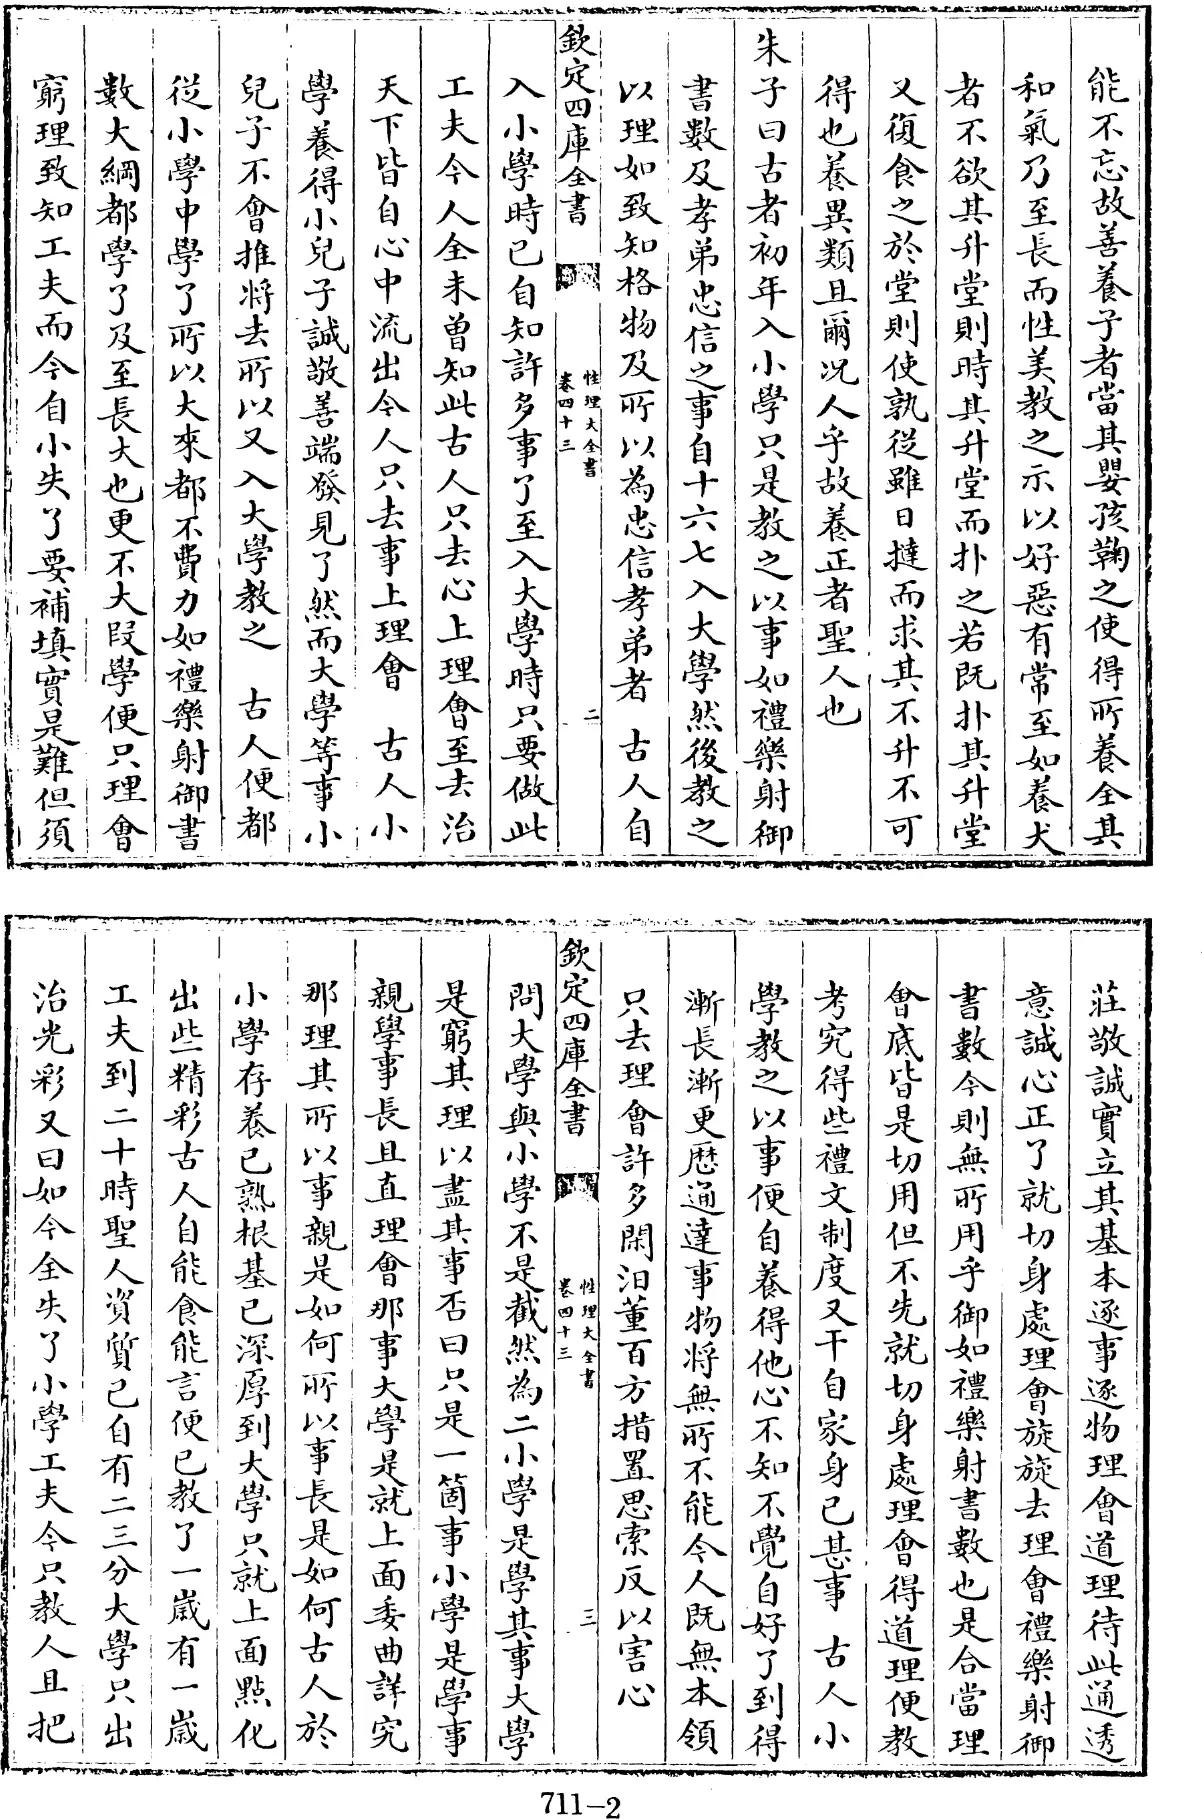 能不忘故善養子者當其嬰孩鞠之使得所養全其
和氣乃至長而性美教之示以好惡有常至如養犬
者不欲其升堂則時其升堂而扑之若既扑其升堂
又復食之於堂則使孰從雖日撻而求其不升不可
得也養異類且爾況人乎故養正者聖人也
朱子曰古者初年入小學只是教之以事如禮樂射御
書數及孝弟忠信之事自十六七入大學然後教之
以理如致知格物及所以為忠信孝弟者　古人自
欽定四庫全書
性理大全書
卷四十三
二
入小學時已自知許多事了至入大學時只要做此
工夫今人全未曾知此古人只去心上理會至去治
天下皆自心中流出今人只去事上理會　古人小
學養得小兒子誠敬善端發見了然而大學等事小
兒子不會推將去所以又入大學教之　古人便都
從小學中學了所以大來都不費力如禮樂射御書
數大綱都學了及至長大也更不大段學便只理會
窮理致知工夫而今自小失了要補填實是難但須
莊敬誠實立其基本逐事逐物理會道理待此通透
意誠心正了就切身處理會旋旋去理會禮樂射御
書數今則無所用乎御如禮樂射書數也是合當理
會底皆是切用但不先就切身處理會得道理便教
考究得些禮文制度又干自家身己甚事　古人小
學教之以事便自養得他心不知不覺自好了到得
漸長漸更歷通達事物將無所不能今人既無本領
只去理會許多閑汩董百方措置思索反以害心
欽定四庫全書
性理大全書
卷四十三
三
問大學與小學不是截然為二小學是學其事大學
是窮其理以盡其事否曰只是一箇事小學是學事
親學事長且直理會那事大學是就上面委曲詳究
那理其所以事親是如何所以事長是如何古人於
小學存養已熟根基已深厚到大學只就上面點化
出些精彩古人自能食能言便已教了一歲有一歲
工夫到二十時聖人資質已自有二三分大學只出
治光彩又曰如今全失了小學工夫今只教人且把
711-2